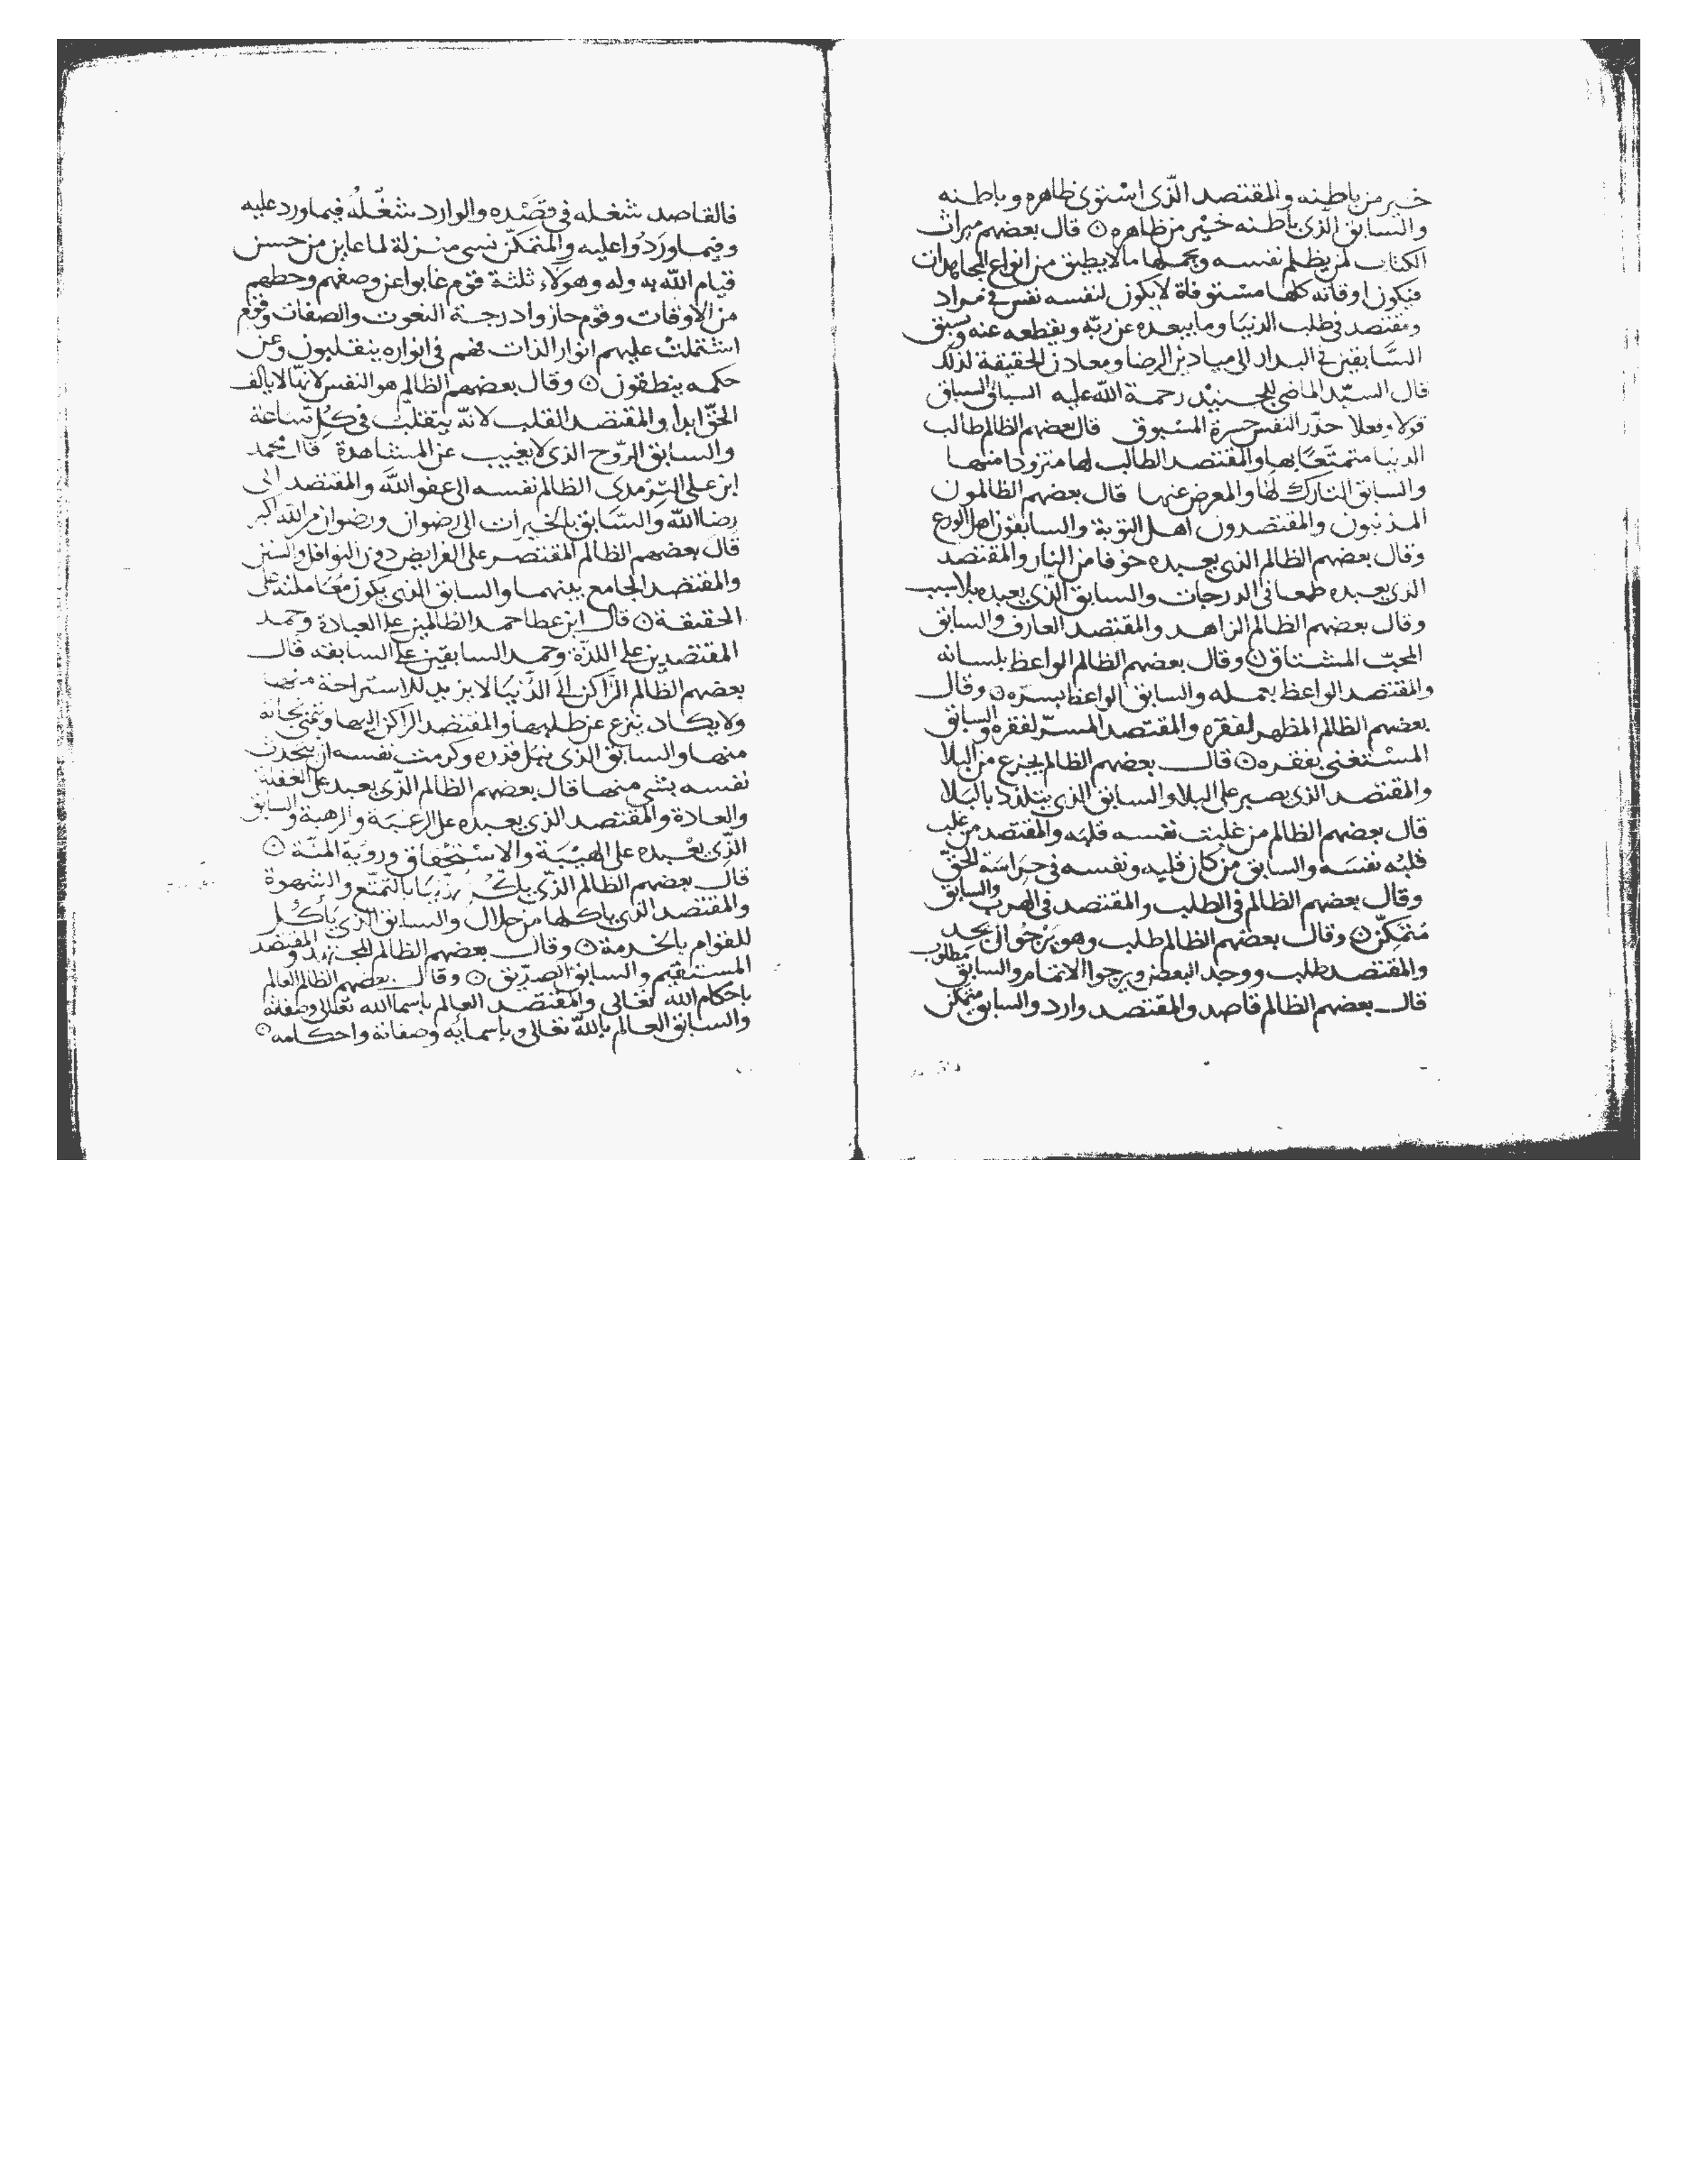 خير من باطنه والمقتصد الذى استوى ظاهره وباطنه
والسابق الذى باطنه خير من ظاهره ۞ قال بعضهم ميراث
الكتاب لمن يظلم نفسه ويحملها ما لا يطيق من انواع المجاهدات
فيكون اوقاته كلها مستوفاة لا يكون لنفسه نفس فى مراد
ومقتصد فى طلب الدنيا وما يبعده عن ربه ويقطعه عنه وسبق
السابقين فى البدار الى ميادين الرضا ومعادن الحقيقة لذلك
قال السيد الماضى الجنيد رحمة الله عليه السباق السباق
قولا وفعلا حذر النفس حسرة المسبوق قال بعضهم الظالم طالب
الدنيا متمتعا بها والمقتصد الطالب لها متزودا منها
والسابق التارك لها والمعرض عنها قال بعضهم الظالمون
المذنبون والمقتصدون اهل التوبة والسابقون اهل الورع
وقال بعضهم الظالم الذى يعبده خوفا من النار والمقتصد
الذى يعبده طمعا فى الدرجات والسابق الذى يعبده بلا سبب
وقال بعضهم الظالم الزاهد والمقتصد العارف والسابق
المحب المشتاق ۞ وقال بعضهم الظالم الواعظ بلسانه
والمقتصد الواعظ بعمله والسابق الواعظ بسره ۞ وقال
بعضهم الظالم المظهر لفقره والمقتصد المسر لفقره والسابق
المستغنى بفقره ۞ قال بعضهم الظالم يجزع من البلا
والمقتصد الذى يصبر على البلا والسابق الذى يتلذذ بالبلا
قال بعضهم الظالم من غلبت نفسه قلبه والمقتصد من غلب
قلبه نفسه والسابق من كان قلبه ونفسه فى حراسة الحق
وقال بعضهم الظالم فى الطلب والمقتصد فى الهرب والسابق
متمكن ۞ وقال بعضهم الظالم طلب وهو يرجوا ان يجد
والمقتصد طلب ووجد البعض ويرجوا الاتمام والسابق مطلوب
قال بعضهم الظالم قاصد والمقتصد وارد والسابق متمكن
فالقاصد شغله فى قصده والوارد شغله فيما ورد عليه
وفيما وردوا عليه والمتمكن نسى منزلة لما عاين من حسن
قيام الله به وله وهولاء ثلثة قوم غابوا عن وصفهم وحظهم
من الاوقات وقوم حازوا درجة النعوت والصفات وقوم
اشتملت عليهم انوار الذات فهم فى انواره ينقلبون وعن
حكمه ينطقون ۞ وقال بعضهم الظالم هو النفس لانها لا يالف
الحق ابدا والمقتصد القلب لانه يتقلب فى كل ساعة
والسابق الروح الذى لا يغيب عن المشاهدة قال محمد
ابن على الترمدى الظالم نفسه الى عفو الله والمقتصد الى
رضا الله والسابق بالخيرات الى رضوان ورضوان من الله اكبر
قال بعضهم الظالم المقتصر على الفرايض دون النوافل والسنن
والمقتصد الجامع بينهما والسابق الذى يكون معاملته على
الحقيقة ۞ قال ابن عطا حمد الظالمين على العبادة وحمد
المقتصدين على اللذة وحمد السابقين على السابقة قال
بعضهم الظالم الراكن الى الدنيا لا يريد للاستراحة منها
ولا يكاد ينزع عن طلبها والمقتصد الراكن اليها وتمنى نجاته
منها والسابق الذى نبل قدره وكرمت نفسه ان يحدث
نفسه بشى منها قال بعضهم الظالم الذى يعبد على الغفلة
والعادة والمقتصد الذى يعبده على الرغبة والرهبة والسابق
الذى يعبده على الهيبة والاستحقاق وروية المنة ۞
قال بعضهم الظالم الذى ياكل الدنيا بالتمتع والشهوة
والمقتصد الذى ياكلها من حلال والسابق الذى ياكل
للقوام بالخدمة ۞ وقال بعضهم الظالم المجتهد والمقتصد
المستقيم والسابق الصديق ۞ وقال بعضهم الظالم العالم
باحكام الله تعالى والمقتصد العالم باسما الله تعالى وصفاته
والسابق العالم بالله تعالى وباسمايه وصفاته واحكامه ۞